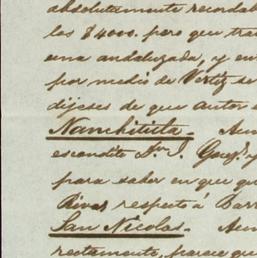 absolutamente recordab
los $4000. pero que tra
una andaluzada, y en
por medio de Vertiz se
dijeses de que autor e
Nanchititla. Aun
escondite Dn. J. Gonz. y
para saber en que qu
Rivas respeto á Barr
San Nicolas. Aun
rectamente, parece que